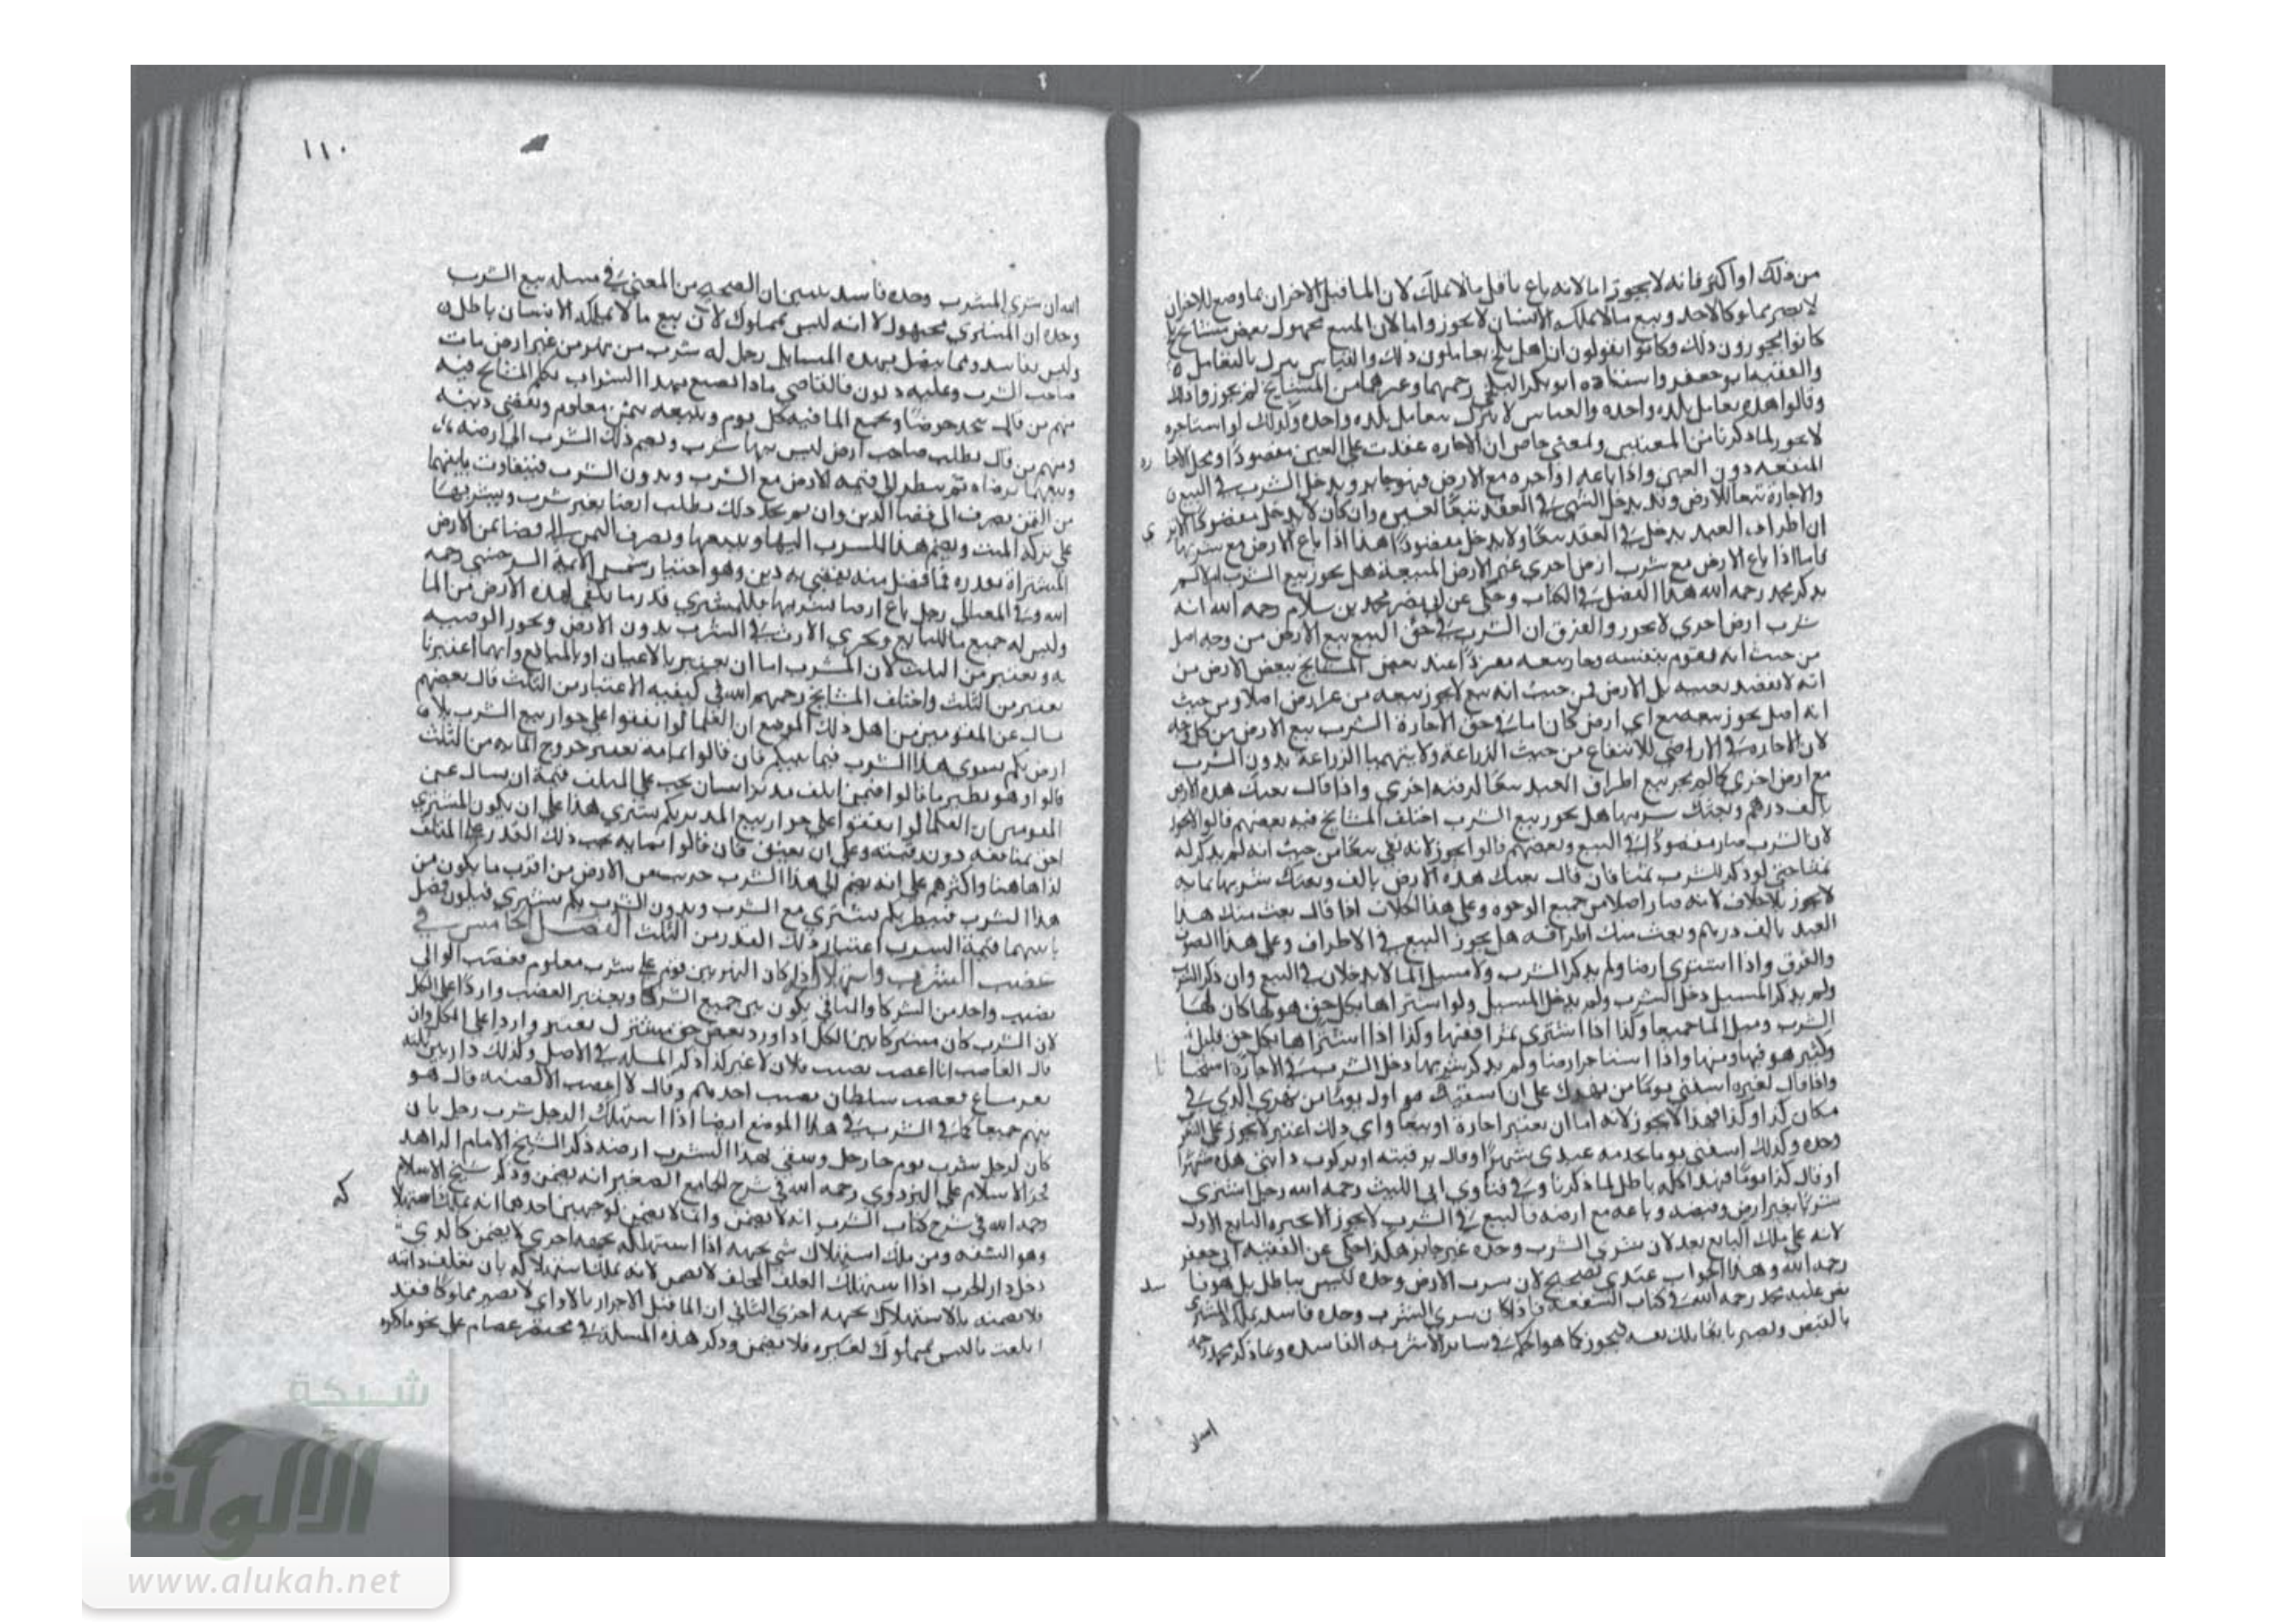 من ذلك او اكثر فانه لا يجوز اما لانه باع ما لا يملك لان الما قبل الاحراز بما وضع للاحراز
لا يصير مملوكا لاحد وبيع ما لا يملكه الانسان لا يجوز واما لان المبيع مجهول بعض مشايخ
كانوا يجوزون ذلك وكانوا يقولون ان اهل بلخ يعاملون ذلك والقياس يترك بالتعامل
والفقيه ابو جعفر واستاذه ابو بكر البلخي رحمهما وغيرهما من المشايخ لم يجوزوا ذلك
وقالوا هذه تعامل بلده واحده والقياس لا يترك بتعامل بلده واحده وكذلك لو استاجره
لا يجوز لما ذكرنا من المعنيين ولمعنى خاص ان الاجاره عقدت على العين مقصودا ومحل الاجا ره
المنفعه دون العين واذا باعه او اجره مع الارض فهو جايز ويدخل الشرب في البيع
والاجارة تبعا للارض وقد يدخل الشي في العقد تبعا لغيره وان كان لا يدخل مقصودا الا يرى
ان اطراف العبد يدخل في العقد تبعا ولا يدخل مقصودا هذا اذا باع الارض مع شربها
فاما اذا باع الارض مع شرب ارض اخرى غير الارض المبيعة هل يجوز بيع الشرب ام لا لم
يذكر محمد رحمه الله هذا الفصل في الكتاب وحكى عن ابي نصر محمد بن سلام رحمه الله انه
شرب ارض اخرى لا يجوز والفرق ان الشرب في حق البيع بيع الارض من وجه اصل
من حيث انه يقوم بنفسه وجاز بيعه مفردا عند بعض المشايخ ببعض الارض من
انه لا يقصد بعينه بل الارض فمن حيث انه بيع لا يجوز بيعه من غير ارض اصلا ومن حيث
انه اصل يجوز بيعه مع اي ارض كان اما في حق الاجارة الشرب بيع الارض من كل وجه
لان الاجاره في الاراضي للانتفاع من حيث الزراعة ولا يتهيا الزراعة بدون الشرب
مع ارض اخرى كما لم يجز بيع اطراف العبد تبعا لرقبه اخرى واذا قال بعتك هذه الارض
بالف درهم وبعتك شربها هل يجوز بيع الشرب اختلف المشايخ فيه بعضهم قالوا لا يجوز
لان الشرب صار مقصودا في البيع وبعضهم قالوا يجوز لانه بقي تبعا من حيث انه لم يذكر له
ثمنا حتى لو ذكر للشرب ثمنا فان قال بعتك هذه الارض بالف وبعتك شربها بمايه
لا يجوز بلا خلاف لانه صار اصلا من جميع الوجوه وعلى هذا الخلاف اذا قال بعت منك هذا
العبد بالف درهم وبعت منك اطرافه هل يجوز البيع في الاطراف وعلى هذا
والفرق واذا اشترى ارضا ولم يذكر الشرب ولا مسيل الما لا يدخلان في البيع وان ذكر الشرب
ولم يذكر المسيل دخل الشرب ولم يدخل المسيل ولو اشتراها بكل حق هو لها كان لها
الشرب ومسيل الما جميعا وكذا اذا اشترى بمرافقها وكذا اذا اشتراها بكل حق قليل
وكثير هو فيها ومنها واذا استاجر ارضا ولم يذكر شربها دخل الشرب في الاجارة استحسا نا
واذا قال لغيره اسقني يوما من نهرك على ان اسقيك يوما من نهري الذي في
مكان كذا وكذا فهذا لا يجوز لانه اما ان يعتبر اجارة او بيعا واي ذلك اعتبر لا يجوز على الشرب
وحده وكذلك اسقني يوما بخدمه عبدي شهرا او قال برقبته او بركوب دابتي هذه شهرا
او قال كذا يوما فهذا كله باطل لما ذكرنا وفي فتاوي ابي الليث رحمه الله رجل اشترى
شربا بغير ارض وقبضه وباعه مع ارضه فالبيع في الشرب لا يجوز الا يجيزه البايع الاول
لانه على ملك البايع بعد لان شرى الشرب وحده غير جايز هكذا حكى عن الفقيه ابي جعفر
رحمه الله وهذا الجواب عندي صحيح لان شرب الارض وحده ليس بباطل بل هو فا سد
نص عليه محمد رحمه الله في كتاب الشفعه فاذا كان شرى الشرب وحده فاسد يملك المشتري
بالقبض ويصير بايعا ملك نفسه فيجوز كما هو الحكم في ساير الاشربه الفاسده وما ذكر محمد رحمه
١١٠
الله ان شرى المشرب وحده فاسد يتبين ان الصحيح من المعنى في مسله بيع الشرب
وحده ان المشترى مجهول لا انه ليس بمملوك لان بيع ما لا يملكه الانسان باطل
وليس بفاسد ومما يتصل بهذه المسايل رجل له شرب من نهر من غير ارض مات
صاحب الشرب وعليه ديون فالقاضي ماذا يصنع بهذا الشراب تكلم المشايخ فيه
منهم من قال يتخذ حوضا ويجمع الما فيه كل يوم ويبيعه بثمن معلوم ويقضى دينه
ومنهم من قال يطلب صاحب ارض ليس بها شرب ويضم ذلك الشرب الى ارضه
وبيعهما برضاه ثم ينظر الى قيمه الارض مع الشرب وبدون الشرب فيتفاوت ما بينهما
من الثمن يصرف الى قضا الدين وان لم يجد ذلك يطلب ارضا بغير شرب ويشتريها
على تركه الميت ويضم هذا الشرب اليها ويبيعها ويصرف الثمن الى قضا ثمن الارض
المشتراة بقدره فما فضل منه يقضي به دينه وهو اختيار شمس الايمة السرخسي رحمه
الله وفي رجل باع ارضا بشربها فللمشتري قدر ما يكفي لهذه الارض من الما
وليس له جميع ما للبايع ويجري الارث في الشرب بدون الارض ويجوز الوصيه
به ويعتبر من الثلث لان المشرب اما ان يعتبر بالاعيان او بالمنافع وايهما اعتبرنا
يعتبر من الثلث واختلف المشايخ رحمهم الله في كيفيه الاعتبار من الثلث قال بعضهم
يسال عن المقومين من اهل ذلك الموضع ان العلما لو اتفقوا على جواز بيع الشرب بلا
ارض بكم يسوى هذا الشرب فيما بينكم فان قالوا بمايه يعتبر خروج المايه من الثلث
قالوا وهو نظير ما قالوا فيمن اتلف مدبر انسان يجب على المتلف قيمه ان يسال عن
المقومين ان العلما لو اتفقوا على جواز بيع المدبر بكم يشترى هذا على ان يكون المشتري
احق بمنافعه دون رقبته وعلى ان يعتق فان قالوا بمايه يجب ذلك القدر على المتلف
كذا هاهنا واكثرهم على انه يضم الى هذا الشرب جريب من الارض من اقرب ما يكون من
هذا الشرب فينظر بكم يشترى مع الشرب وبدون الشرب بكم يشترى فيكون فضل
ما بينهما قيمة الشرب اعتبار ذلك القدر من الثلث الفصل الخامس في
غصب الشرب واستهلاكه اذا كان النهر بين قوم على شرب معلوم فغصب الوالي
نصيب واحد من الشركا والباقي يكون بين جميع الشركا ويعتبر الغصب واردا على الكل
لان الشرب كان مشتركا بين الكل اذا ورد بعض حق مشترك يعتبر واردا على الكل وان
قال الغاصب انا اغصب نصيب فلان لا غير كذا ذكر المسله في الاصل وكذلك دار بين ثلثه
نفر مشاع فغصب سلطان نصيب احدهم وقال لا اغصب الا نصيبه قال هو
بينهم جميعا كما في الشرب في هذا الموضع ايضا اذا استهلك الرجل شرب رجل بان
كان لرجل شرب يوم جا رجل وسقى بهذا الشرب ارضه ذكر الشيخ الامام الزاهد
فخر الاسلام علي البزدوي رحمه الله في شرح الجامع الصغير انه يضمن وذكر شيخ الاسلام
رحمه الله في شرح كتاب الشرب انه لا يضمن وانما لا يضمن لوجهين احدهما انه يملك استهلا كه
وهو الشفه ومن ملك استهلاك شي بجهه اذا استهلكه بجهه اخرى لا يضمن كالذي
دخل دار الحرب اذا استهلك العلف لا يضمن لانه يملك استهلاكه بان يعلف دابته
فلا يضمنه بالاستهلاك بجهه اخرى الثاني ان الما قبل الاحراز بالاواني لا يصير مملوكا فقد
اتلف ما ليس بمملوك لغيره فلا يضمن وذكر هذه المسلة في مختصر عصام على نحو ما ذكره
شبكة
الألوكة
www.alukah.net